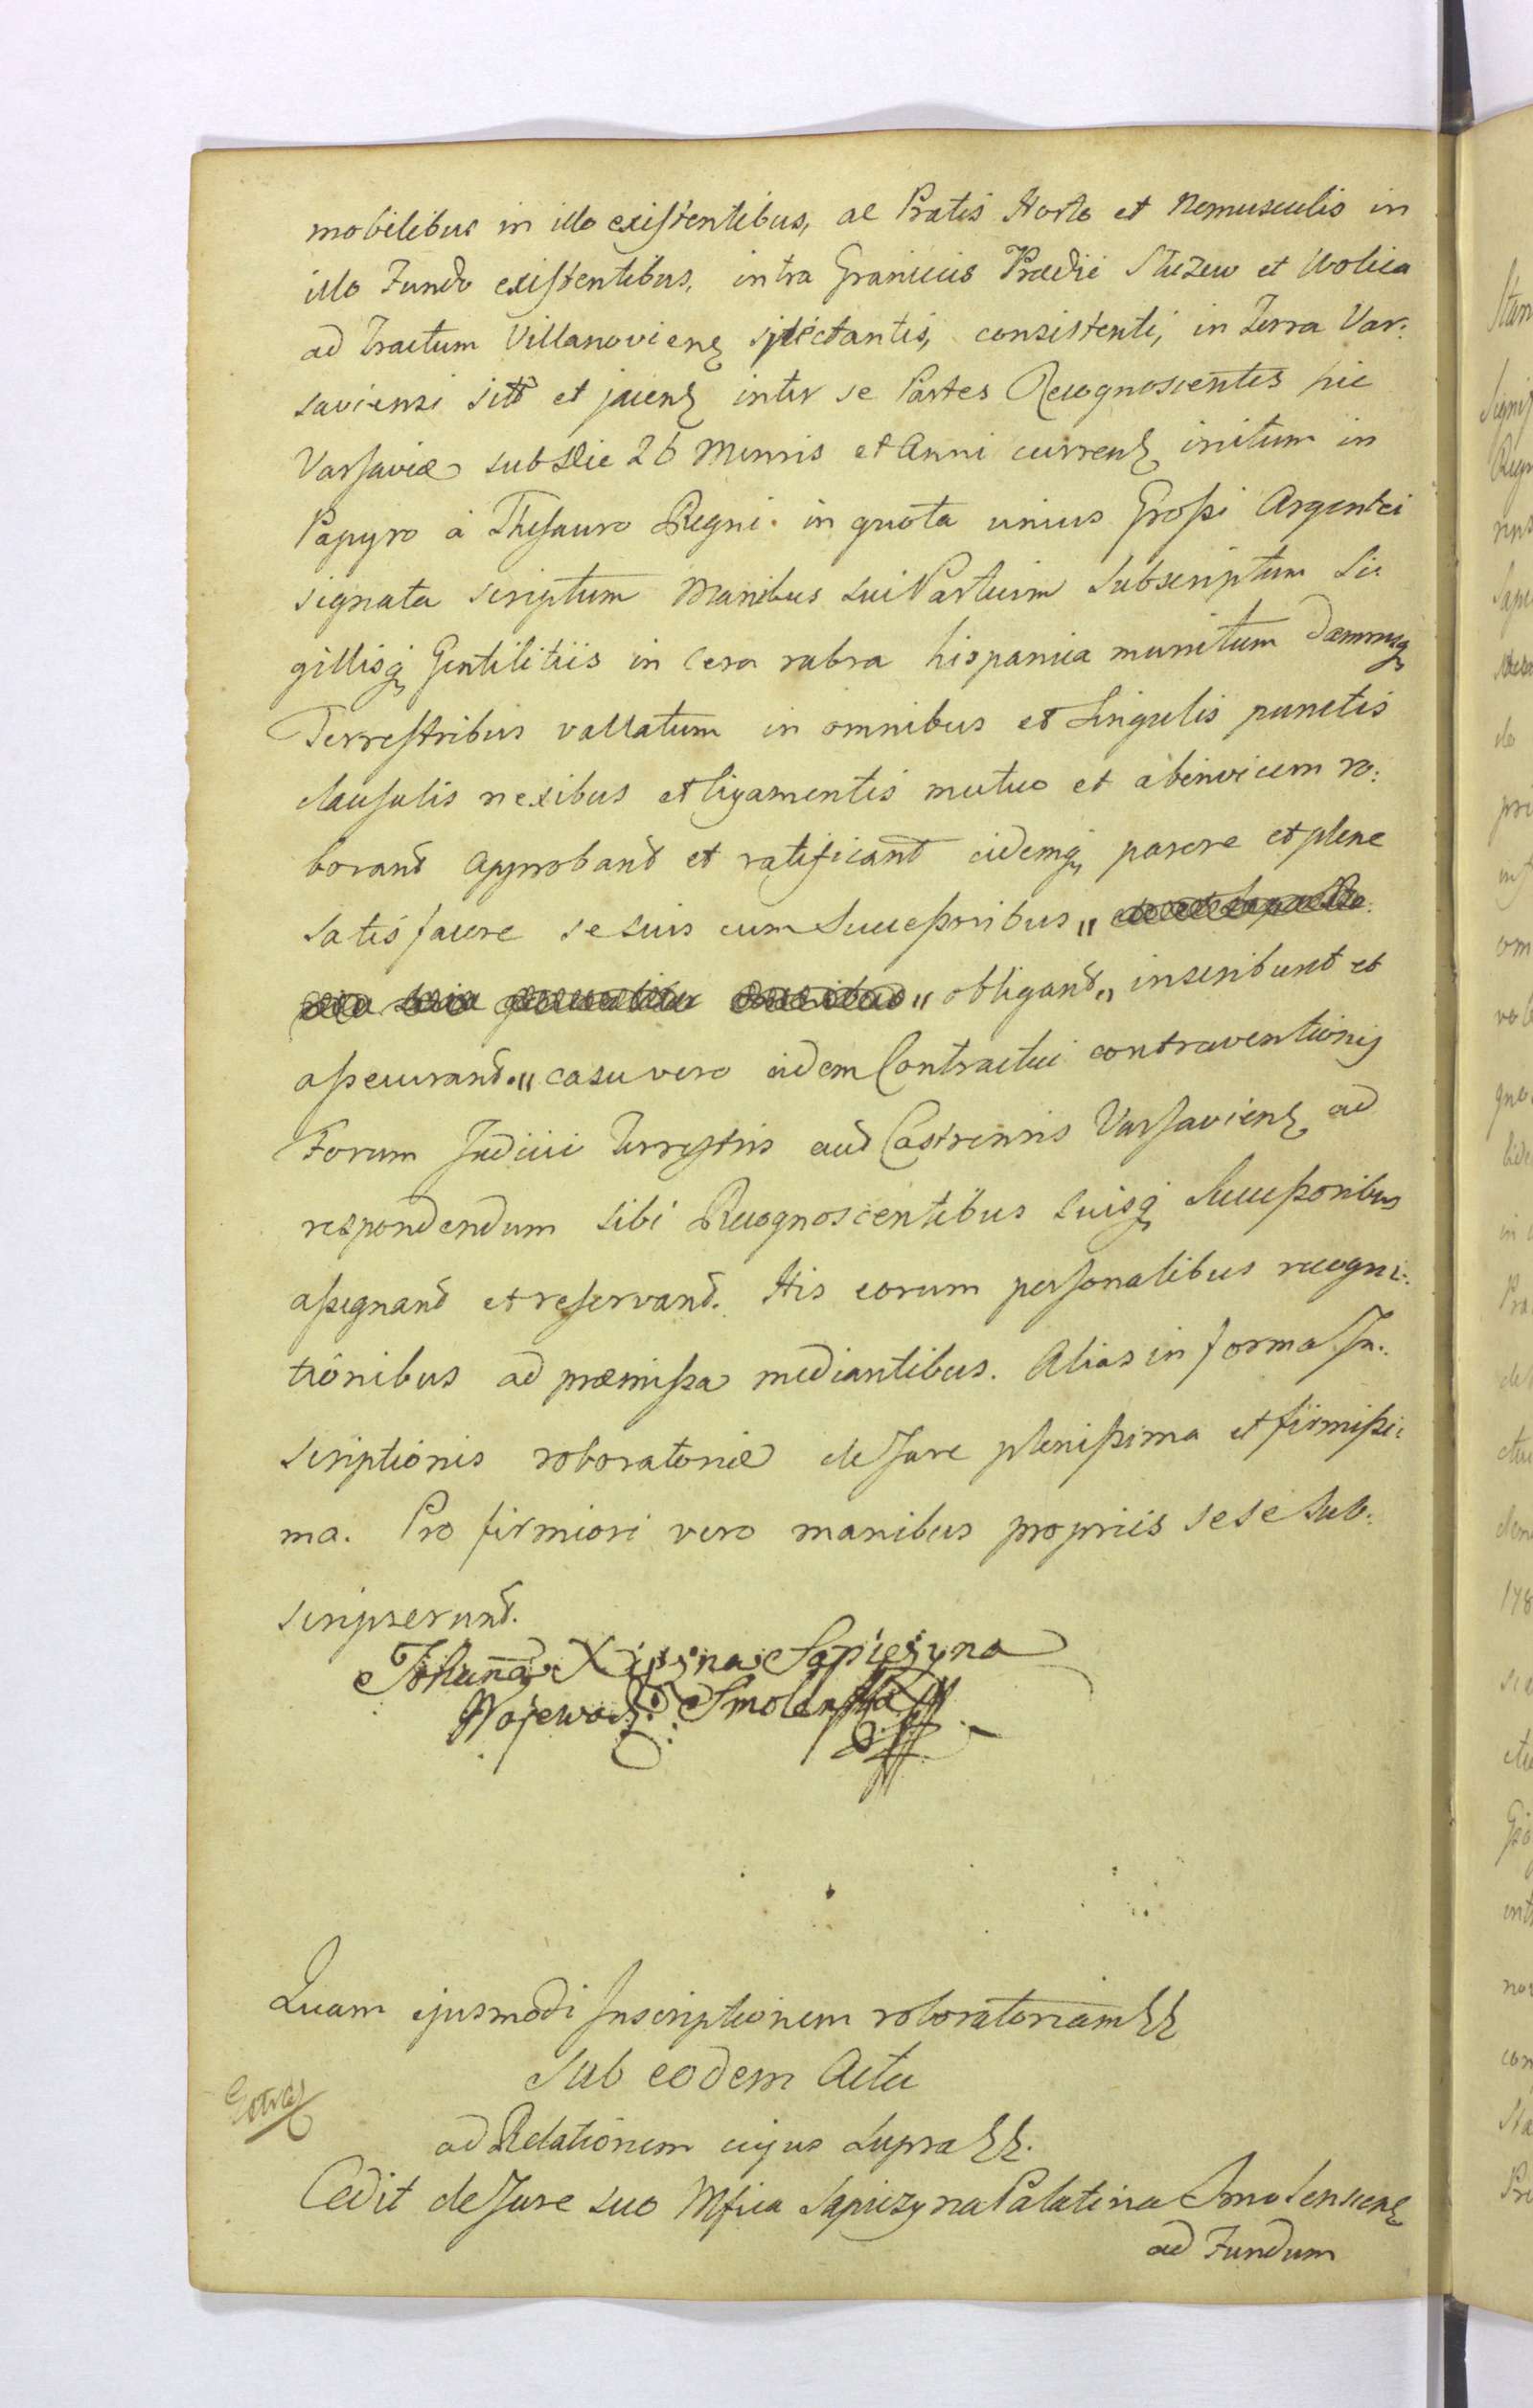 mobilibus in illo existentibus, ac Pratis Horto et Nemusculis in
illo Fundo existentibus, intra Granicies Prædii Służew et Wolica
ad Tractum Villanoviens spectantis, consistenti, in Terra Var:
saviensi sitt et jacens inter se Partes Recognoscentes hic
Varsaviæ sub Die 26 Mensis et Anni currens initum in
Papyro à Thesauro Regni in quota unius Grossi Argentei
signata scriptum Manibus sui Partium Subscriptum Si:
gillisq Gentilitiis in Cera rubra hispanica munitum Damnisq
Terrestribus vallatum in omnibus et Singulis punctis
clausulis nexibus et ligamentis mutuo et abinvicem ro:
borant approbant et ratificant eidemq parere et plene
satisfacere se suis cum Successoribus
obligant inscribunt et
assecurant. casu vero eidem Contractui contraventionis
Forum Judicii Terrestris aut Castrensis Varsaviens ad
respondendum sibi Recognoscentibus suisq Successoribus
assignant et reservant. His eorum personalibus recogni:
tionibus ad præmissa mediantibus. Alias in forma In:
scriptionis roboratoriæ de Jure plenissima et firmissi:
ma. Pro firmiori vero manibus propriis sese sub:
scripserunt.
Johanna Xiężna Sapieżyna
Wojewodz: Smoleńska
Quam ejusmodi Inscriptionem roboratoriam
Sub eodem Actu
ad Relationem cujus supra
Cedit de Jure suo Mfica Sapiezyna Palatina Smolensciens
ad Fundum